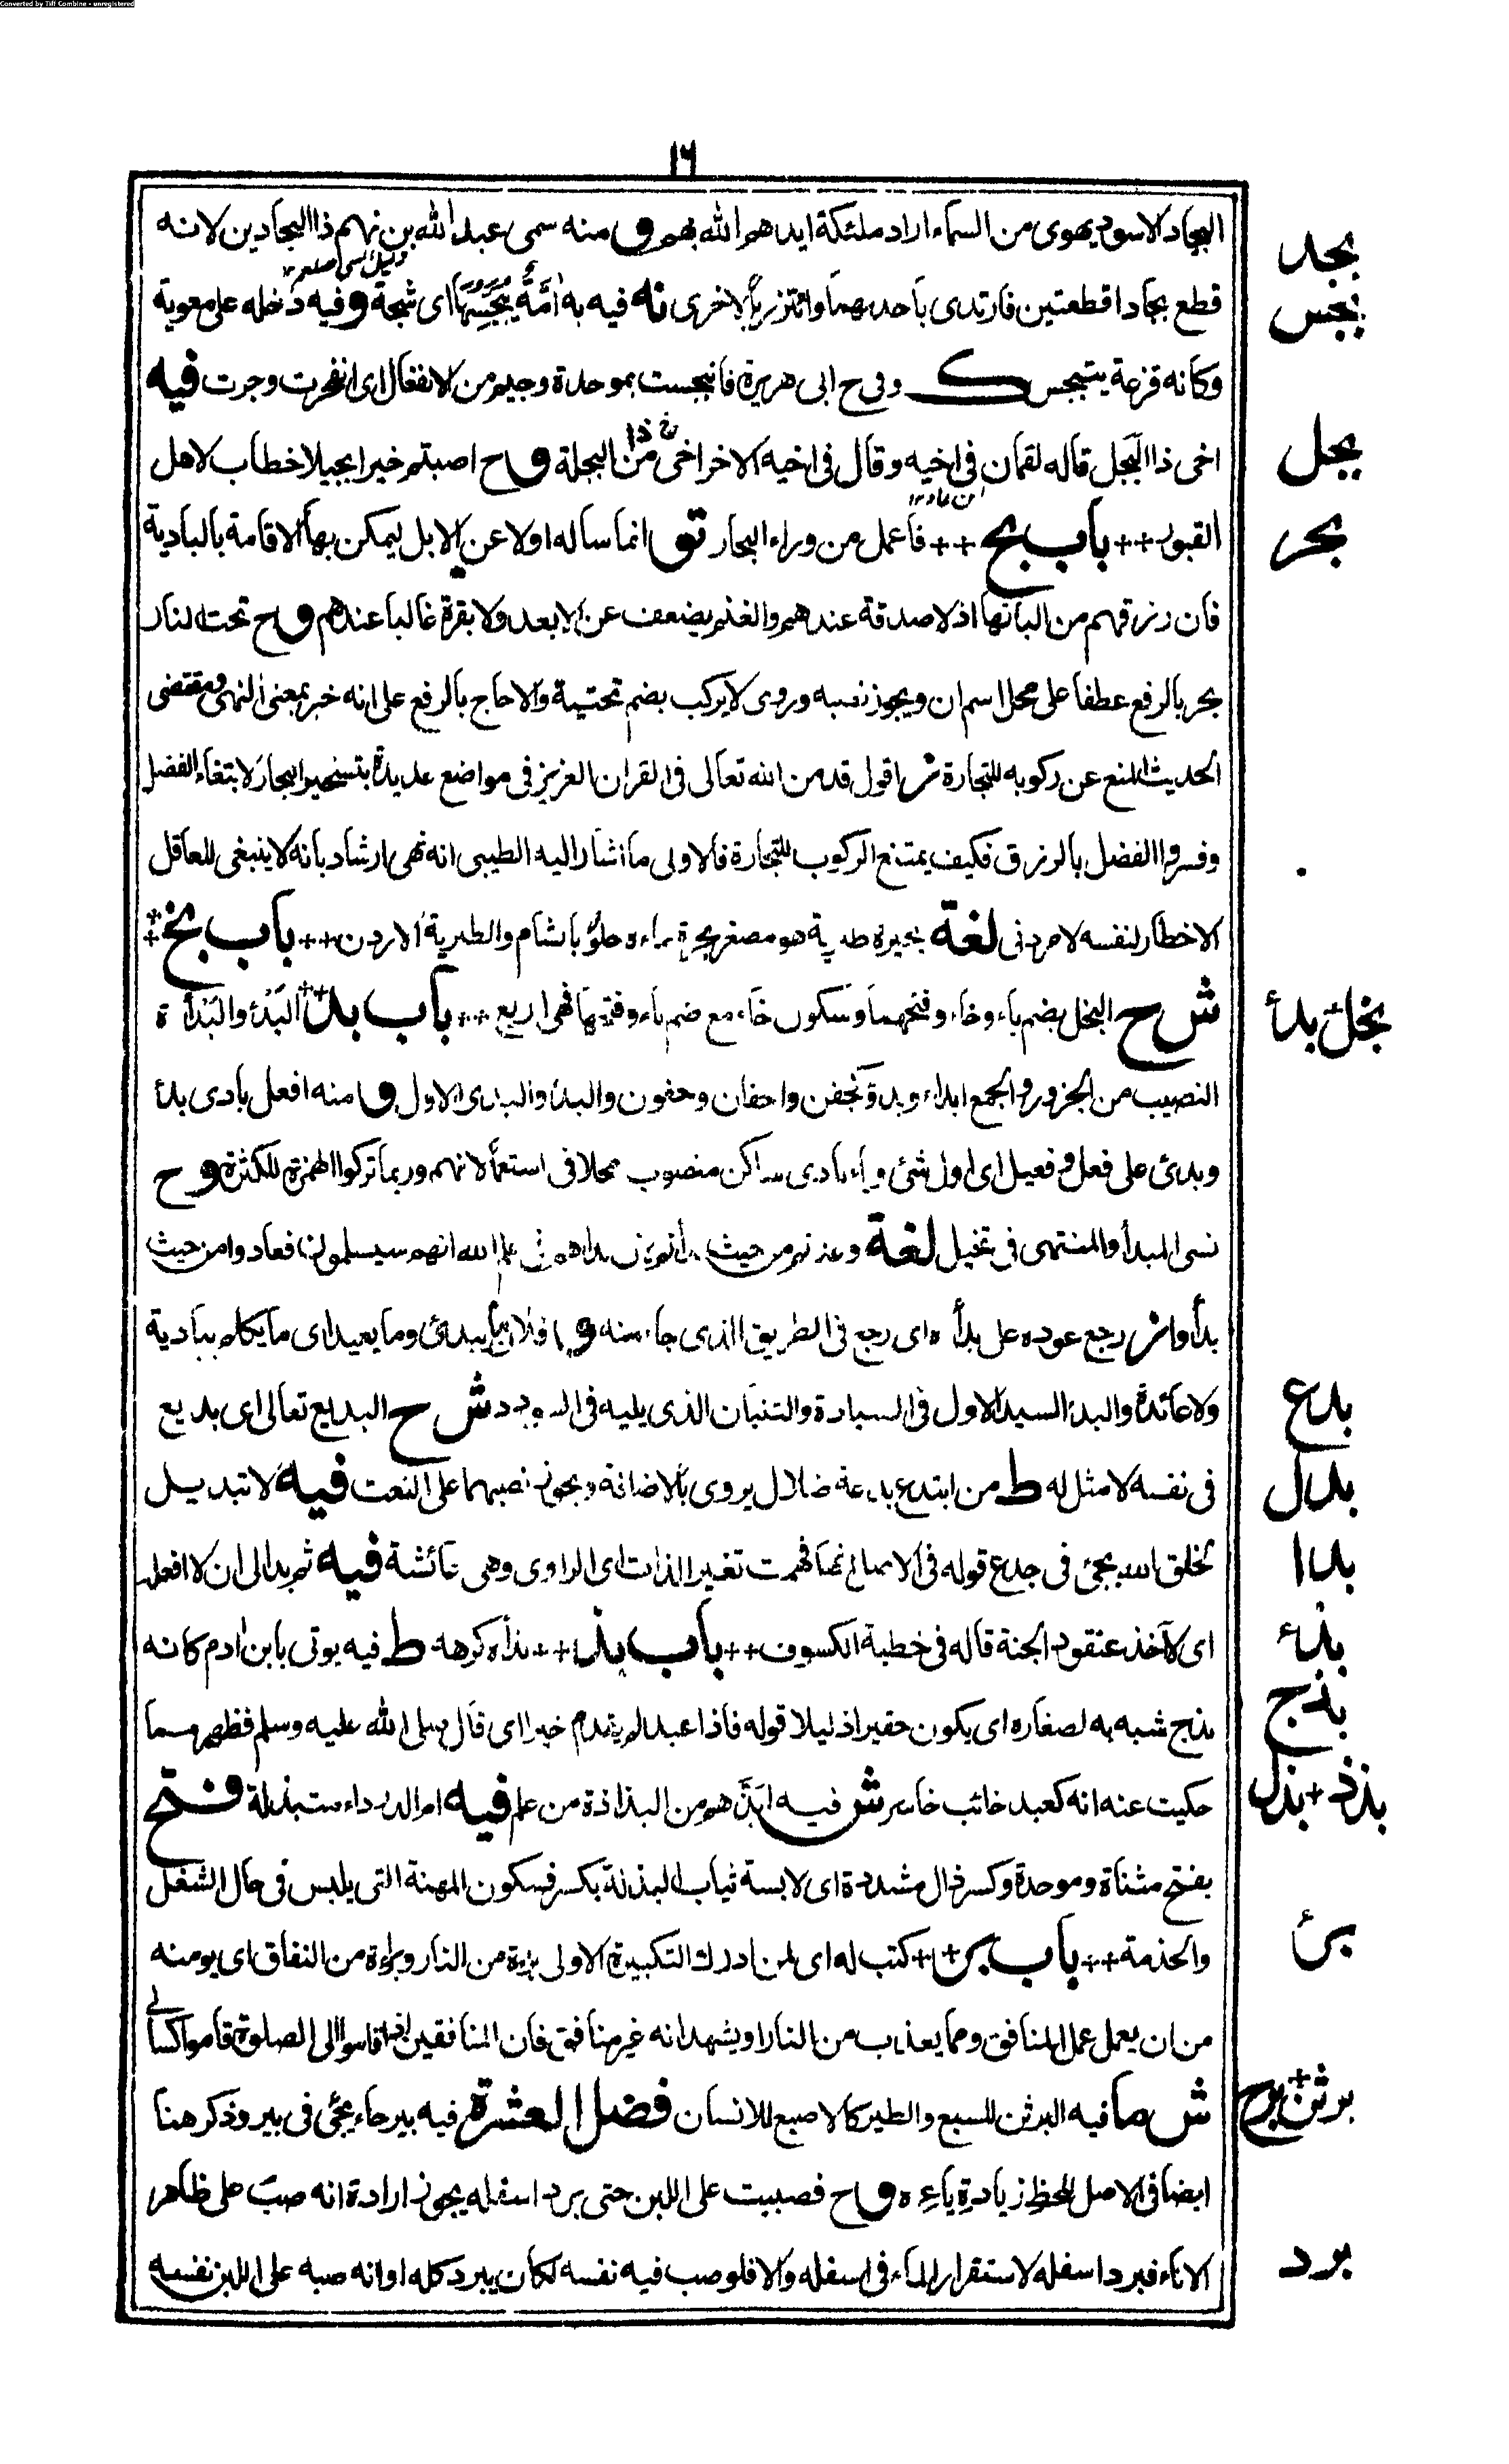 Converted by Tiff Combine - unregistered
١٦
البجاد الاسود يهوى من السماء اراد ملئكة ايدهم الله بهم و منه سمى عبد الله بن نهم ذا البجادين لانه
بجد
قطع بجادا قطعتين فارتدى باحدىهما وائتزر بالاخرى نه فيه به امّة يبجسها اى شجة و فيه دخله على معوية
بجس
وكانه قزعة يتبجس ك وفى ح ابى هريرة فانبجست بموحدة وجيم من الانفعال اى انفجرت وجرت فيه
اخى ذا البجل قاله لقمان فى اخيه وقال فى اخيه الاخر اخى من البجلة و ح اصبتم خيرا بجيلا خطاب لاهل
بجل
ابن عاد
القبور ++ باب بح ++ فاعمل من وراء البحار تو انما ساله اولا عن الابل ليمكن بها الاقامة بالبادية
بحر
فان رزقهم من البانها اذ لا صدقة عندهم والغنم يضعف عن الابعد ولا بقرة غالبا عندهم و ح تحت النار
بحر بالرفع عطفا على محل اسم ان ويجوز نصبه وروى لا يركب بضم تحتية والاحاج بالرفع على انه خبر بمعنى النهى ومقتضى
الحديث المنع عن ركوبه للتجارة ش اقول قد من الله تعالى فى القران العزيز فى مواضع عديدة بتسخير البحار لابتغاء الفضل
وفسروا الفضل بالرزق فكيف يمتنع الركوب للتجارة فالاولى ما اشار اليه الطيبى انه نهى ارشاد بانه لا ينبغى للعاقل
الاخطار لنفسه لامر دنى لغة بحيرة طبرية هو مصغر بحرة ماءه حلو بالشام والطبرية الاردن ++ باب بخ ++
ش ح البخل بضم باء وخاء وفتحهما وسكون خاء مع ضم باء وفتحها فهى اربع ++ باب بد ++ البدء والبدأة
بخل + بدأ
النصيب من الجزور والجمع ابداء وبدؤ كجفن واجفان وجفون والبدء والبدى الاول و منه افعل بادى بدأ
وبدئ على فعل و فعيل اى اول شئ وياء بادى ساكن منصوب محلا فى استعمالا نهم وربما تركوا الهمزة للكثرة و ح
نسى المبدأ والمنتهى فى تخيل لغة وعدتم من حيث بدأتم اى بداهم فى علم الله انهم سيسلمون فعادوا من حيث
بدأوا ش رجع عوده على بدأه اى رجع فى الطريق الذى جاء منه و فلان ما يبدئ وما يعيد اى ما يتكلم ببادية
ولا عائدة والبدء السيد الاول فى السيادة والثنيان الذى يليه فى السودد ش ح البديع تعالى اى بديع
بدع
فى نفسه لا مثل له ط من ابتدع بدعة ضلال يروى بالاضافة ويجوز نصبهما على النعت فيه لا تبديل
بدل
لخلق الله يجئ فى جدع قوله فى الاسماء انما فهمت تغير الذات اى الراوى وهى عائشة فيه ثم بدا لى ان لا افعل
بدا
اى لآخذ عنقود الجنة قاله فى خطبة الكسوف ++ باب بذ ++ بذأه كرهه ط فيه يوتى بابن ادم كانه
بذء
بذج شبه به لصغاره اى يكون حقيرا ذليلا قوله فاذا عبد لم يقدم خيرا اى قال صلى الله عليه وسلم فظهر مما
بذج
حكيت عنه انه كعبد خائب خاسر ش فيه ابذّ هم من البذاذة من علم فيه ام الدرداء متبذلة فتح
بذذ + بذل
بفتح مثناة وموحدة وكسر ذال مشددة اى لابسة ثياب البذلة بكسر فسكون المهنة التى يلبس فى حال الشغل
والخدمة ++ باب بر ++ كتب له اى لمن ادرك التكبيرة الاولى براءة من النار وبراءة من النفاق اى يومنه
برئ
من ان يعمل عمل المنافق ومما يعذب من النار او يشهد انه غير منافق فان المنافقين اذا قاموا الى الصلوة قاموا كسالى
ش ما فيه البرثن للسبع والطير كالاصبع للانسان فضل العشرة فيه بيرحاء يجئ فى بير وذكر هنا
برثن + برح
ايضا فى الاصل للحظ زيادة ياءه و ح فصببت على اللبن حتى برد اسفله يجوز ارادة انه صب على ظاهر
الاناء فبرد اسفله لاستقرار الماء فى اسفله والا فلو صب فيه نفسه لكان يبرد كله او انه صبه على اللبن نفسه
برد